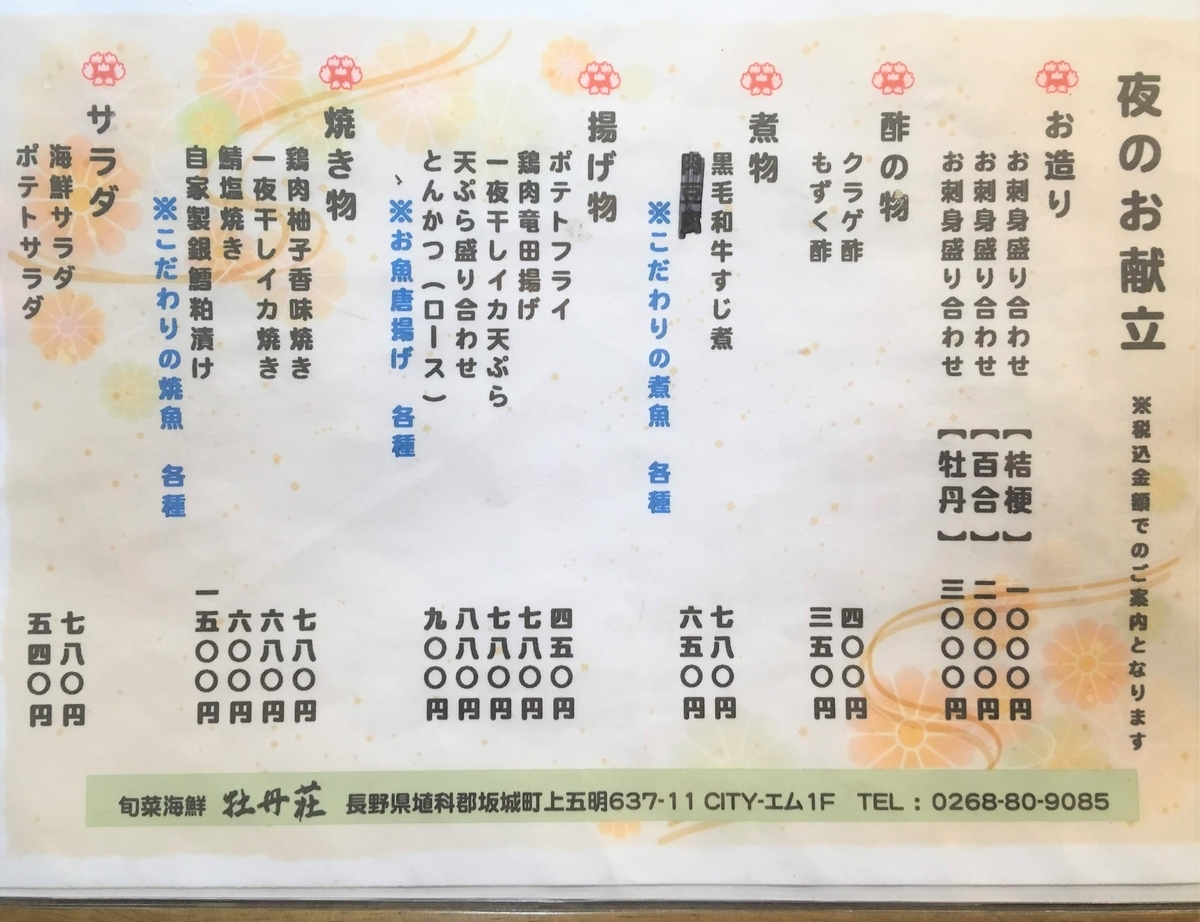 夜のお献立 ※税込金額でのご案内となります
お造り
お刺身盛り合わせ 【桔梗】 一〇〇〇円
お刺身盛り合わせ 【百合】 二〇〇〇円
お刺身盛り合わせ 【牡丹】 三〇〇〇円
酢の物
クラゲ酢 四〇〇円
もずく酢 三五〇円
煮物
黒毛和牛すじ煮 七八〇円
六五〇円
※こだわりの煮魚 各種
揚げ物
ポテトフライ 四五〇円
鶏肉竜田揚げ 七八〇円
一夜干しイカ天ぷら 七八〇円
天ぷら盛り合わせ 八八〇円
とんかつ(ロース) 九〇〇円
※お魚唐揚げ 各種
焼き物
鶏肉柚子香味焼き 七八〇円
一夜干しイカ焼き 六八〇円
鯖塩焼き 六〇〇円
自家製銀鱈粕漬け 一五〇〇円
※こだわりの焼魚 各種
サラダ
海鮮サラダ 七八〇円
ポテトサラダ 五四〇円
旬菜海鮮 牡丹荘 長野県埴科郡坂城町上五明637-11 CITY-エム1F TEL : 0268-80-9085